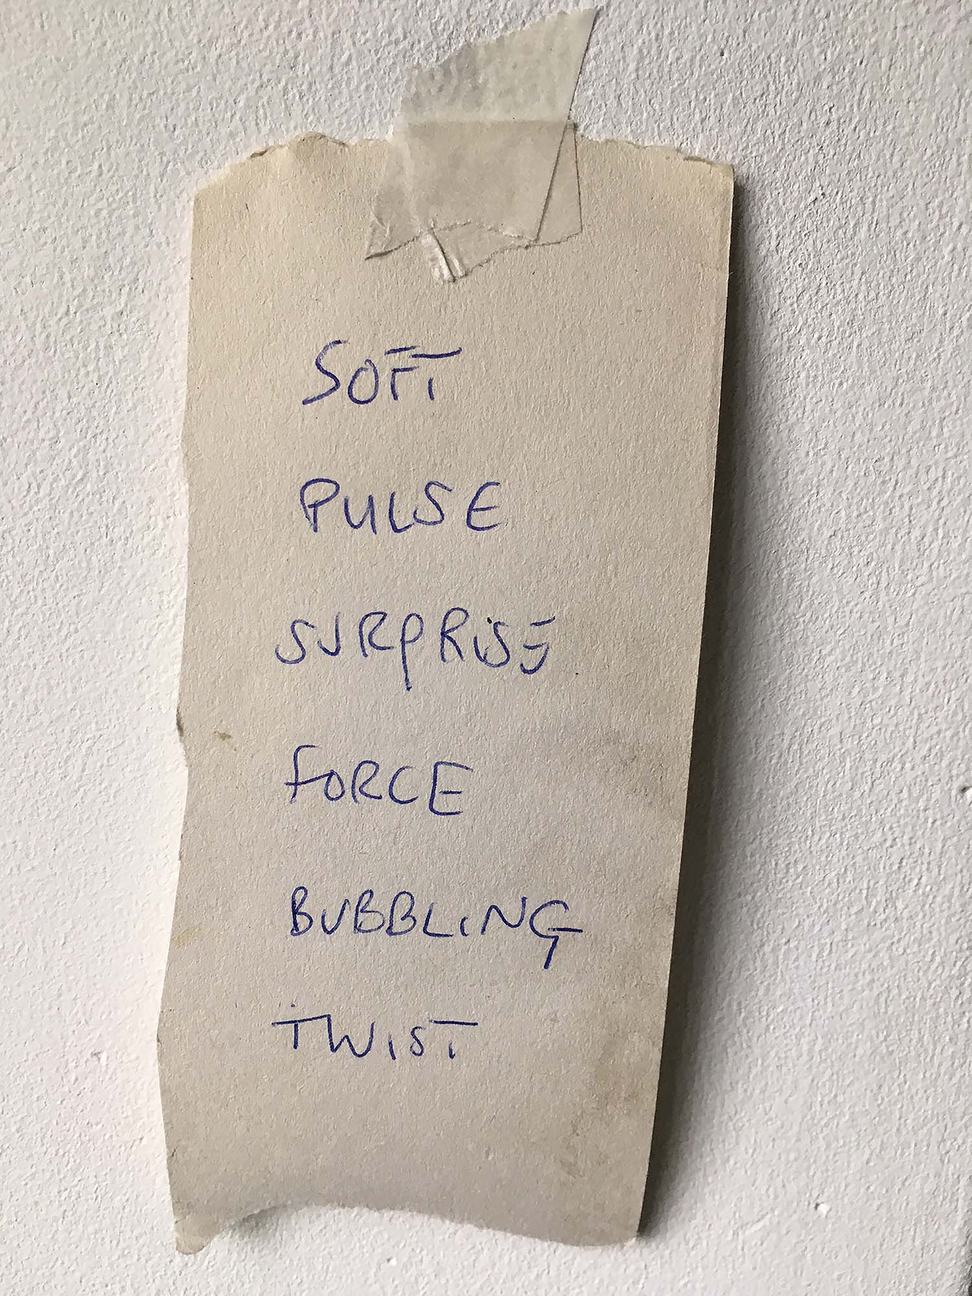 SOFT
PULSE
SURPRISE
FORCE
BUBBLING
TWIST